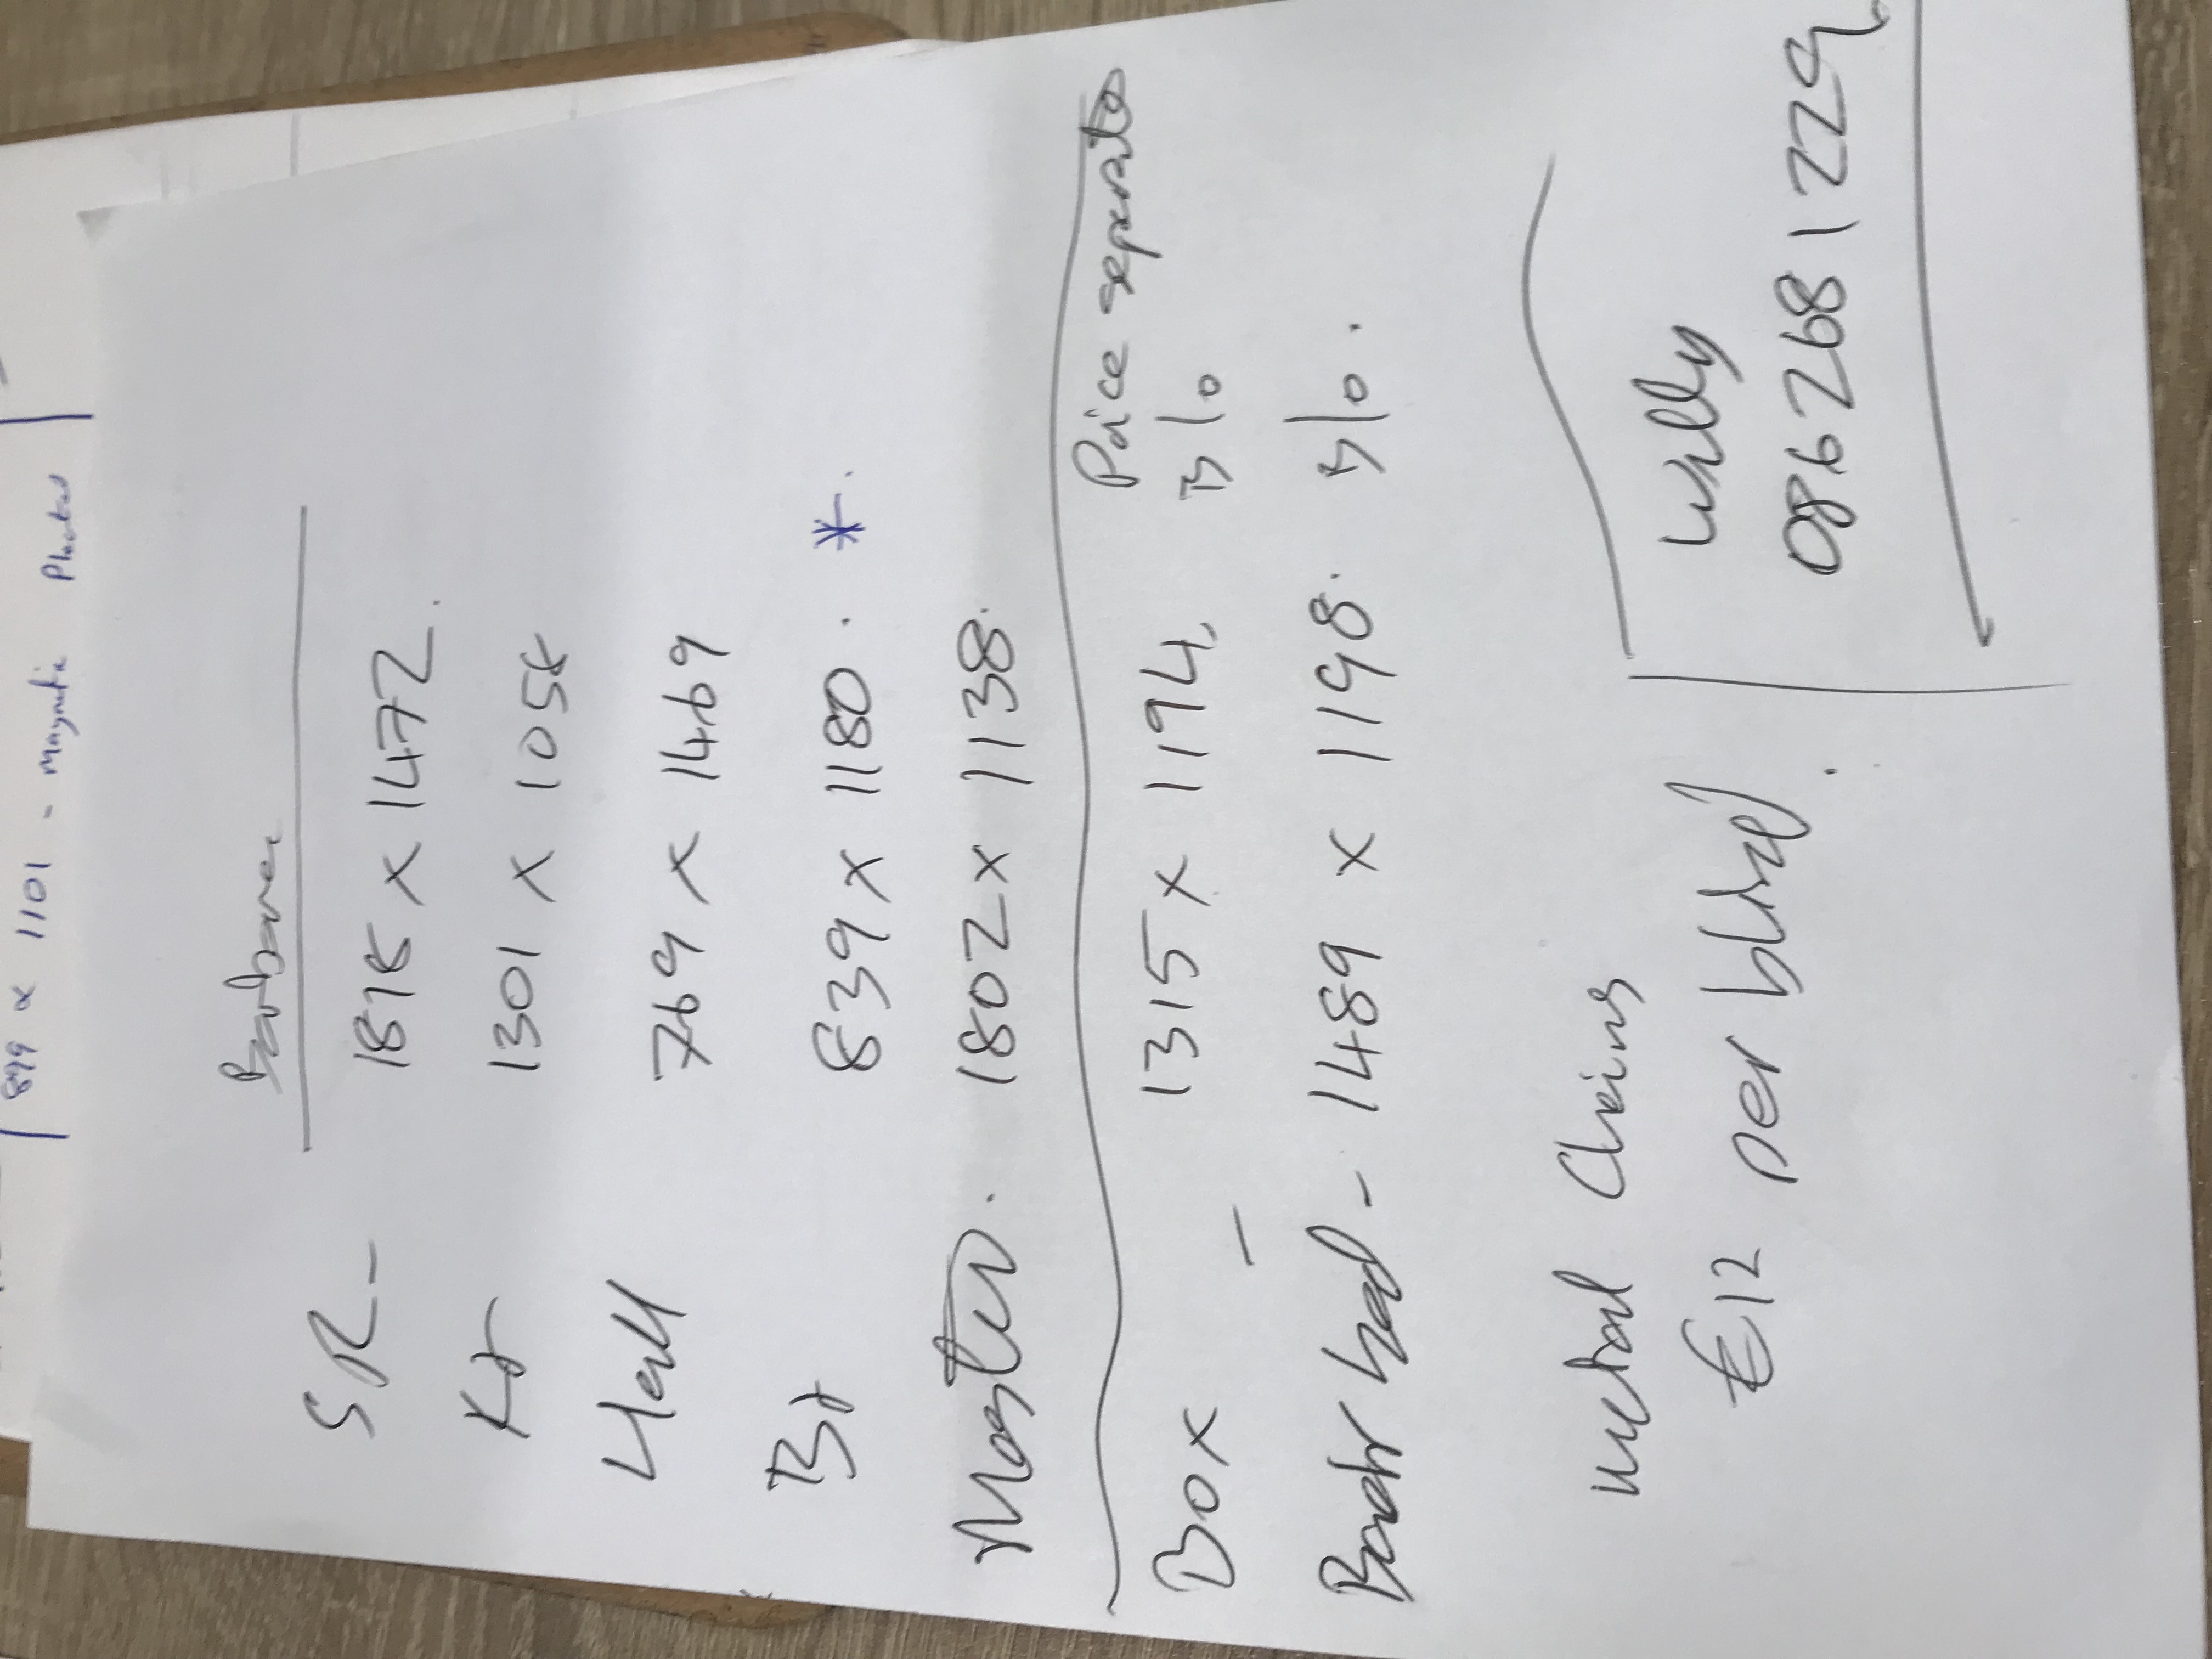 899 x 1101 - magnetic Pleated
Barbara
SR - 1875 x 1472.
Kt 1301 x 1058
Hall 769 x 1469
Br 839 x 1180. *.
Master. 1802 x 1138.
Price separate
Box - 1315 x 1194, B/o
Back bed - 1489 x 1198. B/o.
metal Chains
€12 per blind.
Willy
086 268 1229